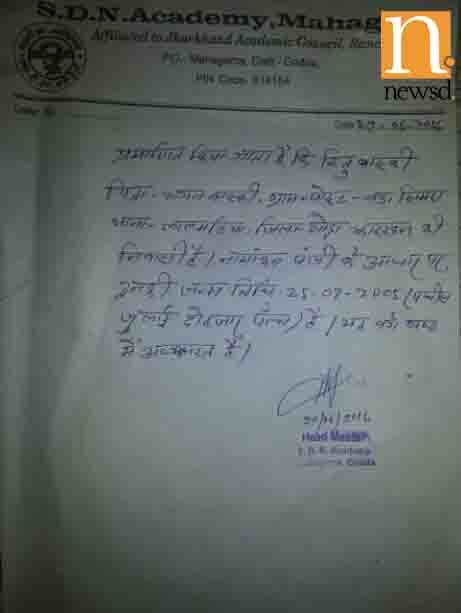 S.D.N. Academy, Mahag
Affiliated to Jharkhand Academic Council, Ranc
P.O.- Mahagama, Distt - Godda,
PIN Code- 814154
n.
newsd
Date 29-06-2016
प्रमाणित किया जाता है कि
पिता- ग्राम-पोस्ट-
थाना- जिला गोड्डा झारखंड की
निवासी है। नामांकन पंजी के आधार पर
इनकी जन्म तिथि 25-07-2005 (पचीस
जुलाई दो हजार पाँच) है। यह वर्ग
में अध्ययनरत है।
Head Master
S. D. N. Academy
Mahagama, Godda